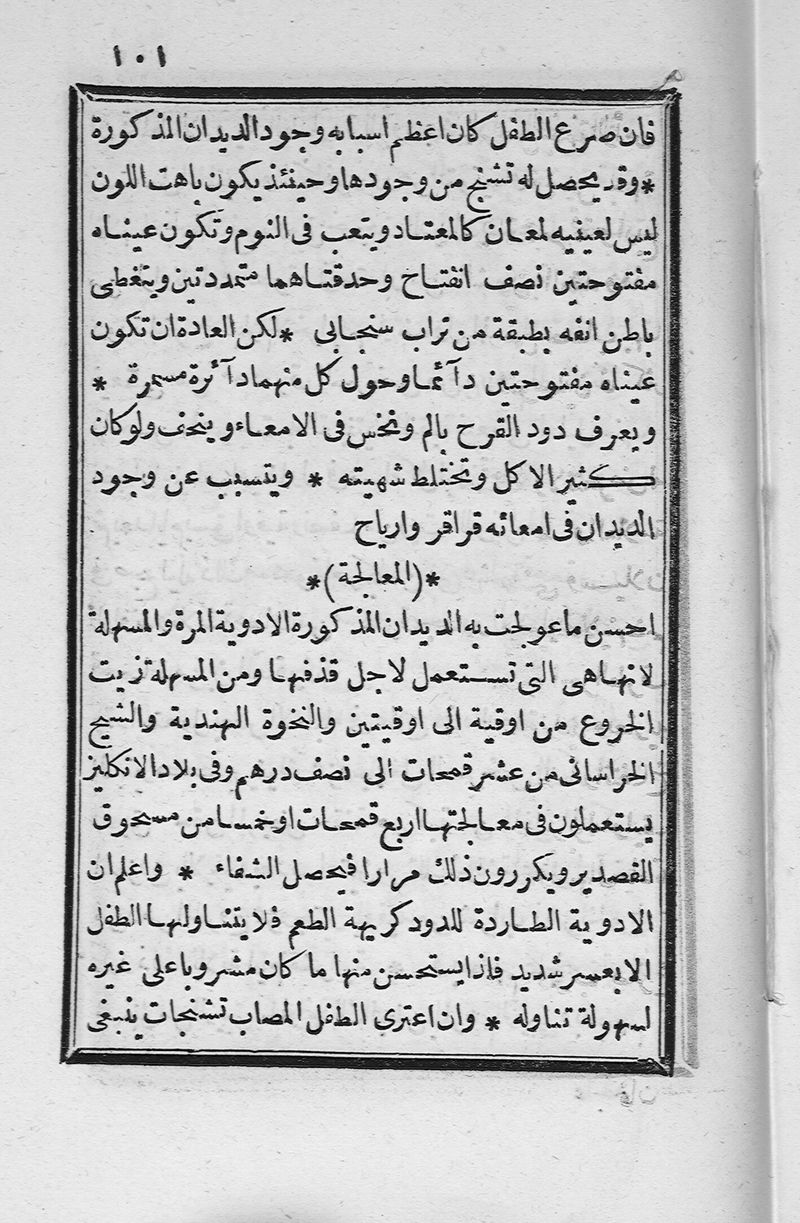 ١٠١
فان صرع الطفل كان اعظم اسبابه وجود الديدان المذكورة
* وقد يحصل له تشنج من وجودها وحينئذ يكون باهت اللون
ليس لعينيه لمعان كالمعتاد ويتعب فى النوم وتكون عيناه
مفتوحتين نصف انفتاح وحدقتاهما متمددتين ويتغطى
باطن انفه بطبقة من تراب سنجابى * لكن العادة ان تكون
عيناه مفتوحتين دآئما وحول كل منهما دآئرة مسمرة *
ويعرف دود القرح بالم ونخس فى الامعاء وينحف ولو كان
كثير الاكل وتختلط شهيته * ويتسبب عن وجود
الديدان فى امعائه قراقر وارياح
*(المعالجة)*
احسن ما عولجت به الديدان المذكورة الادوية المرة والمسهلة
لانها هى التى تستعمل لاجل قذفها ومن المسهلة زيت
الخروع من اوقية الى اوقيتين والنخوة الهندية والشيح
الخراسانى من عشر قمحات الى نصف درهم وفى بلاد الانكليز
يستعملون فى معالجتها اربع قمحات او خمسا من مسحوق
القصدير ويكررون ذلك مرارا فيحصل الشفاء * واعلم ان
الادوية الطاردة للدود كريهة الطعم فلا يتناولها الطفل
الا بعسر شديد فاذا يستحسن منها ما كان مشروبا على غيره
لسهولة تناوله * وان اعترى الطفل المصاب تشنجات ينبغى